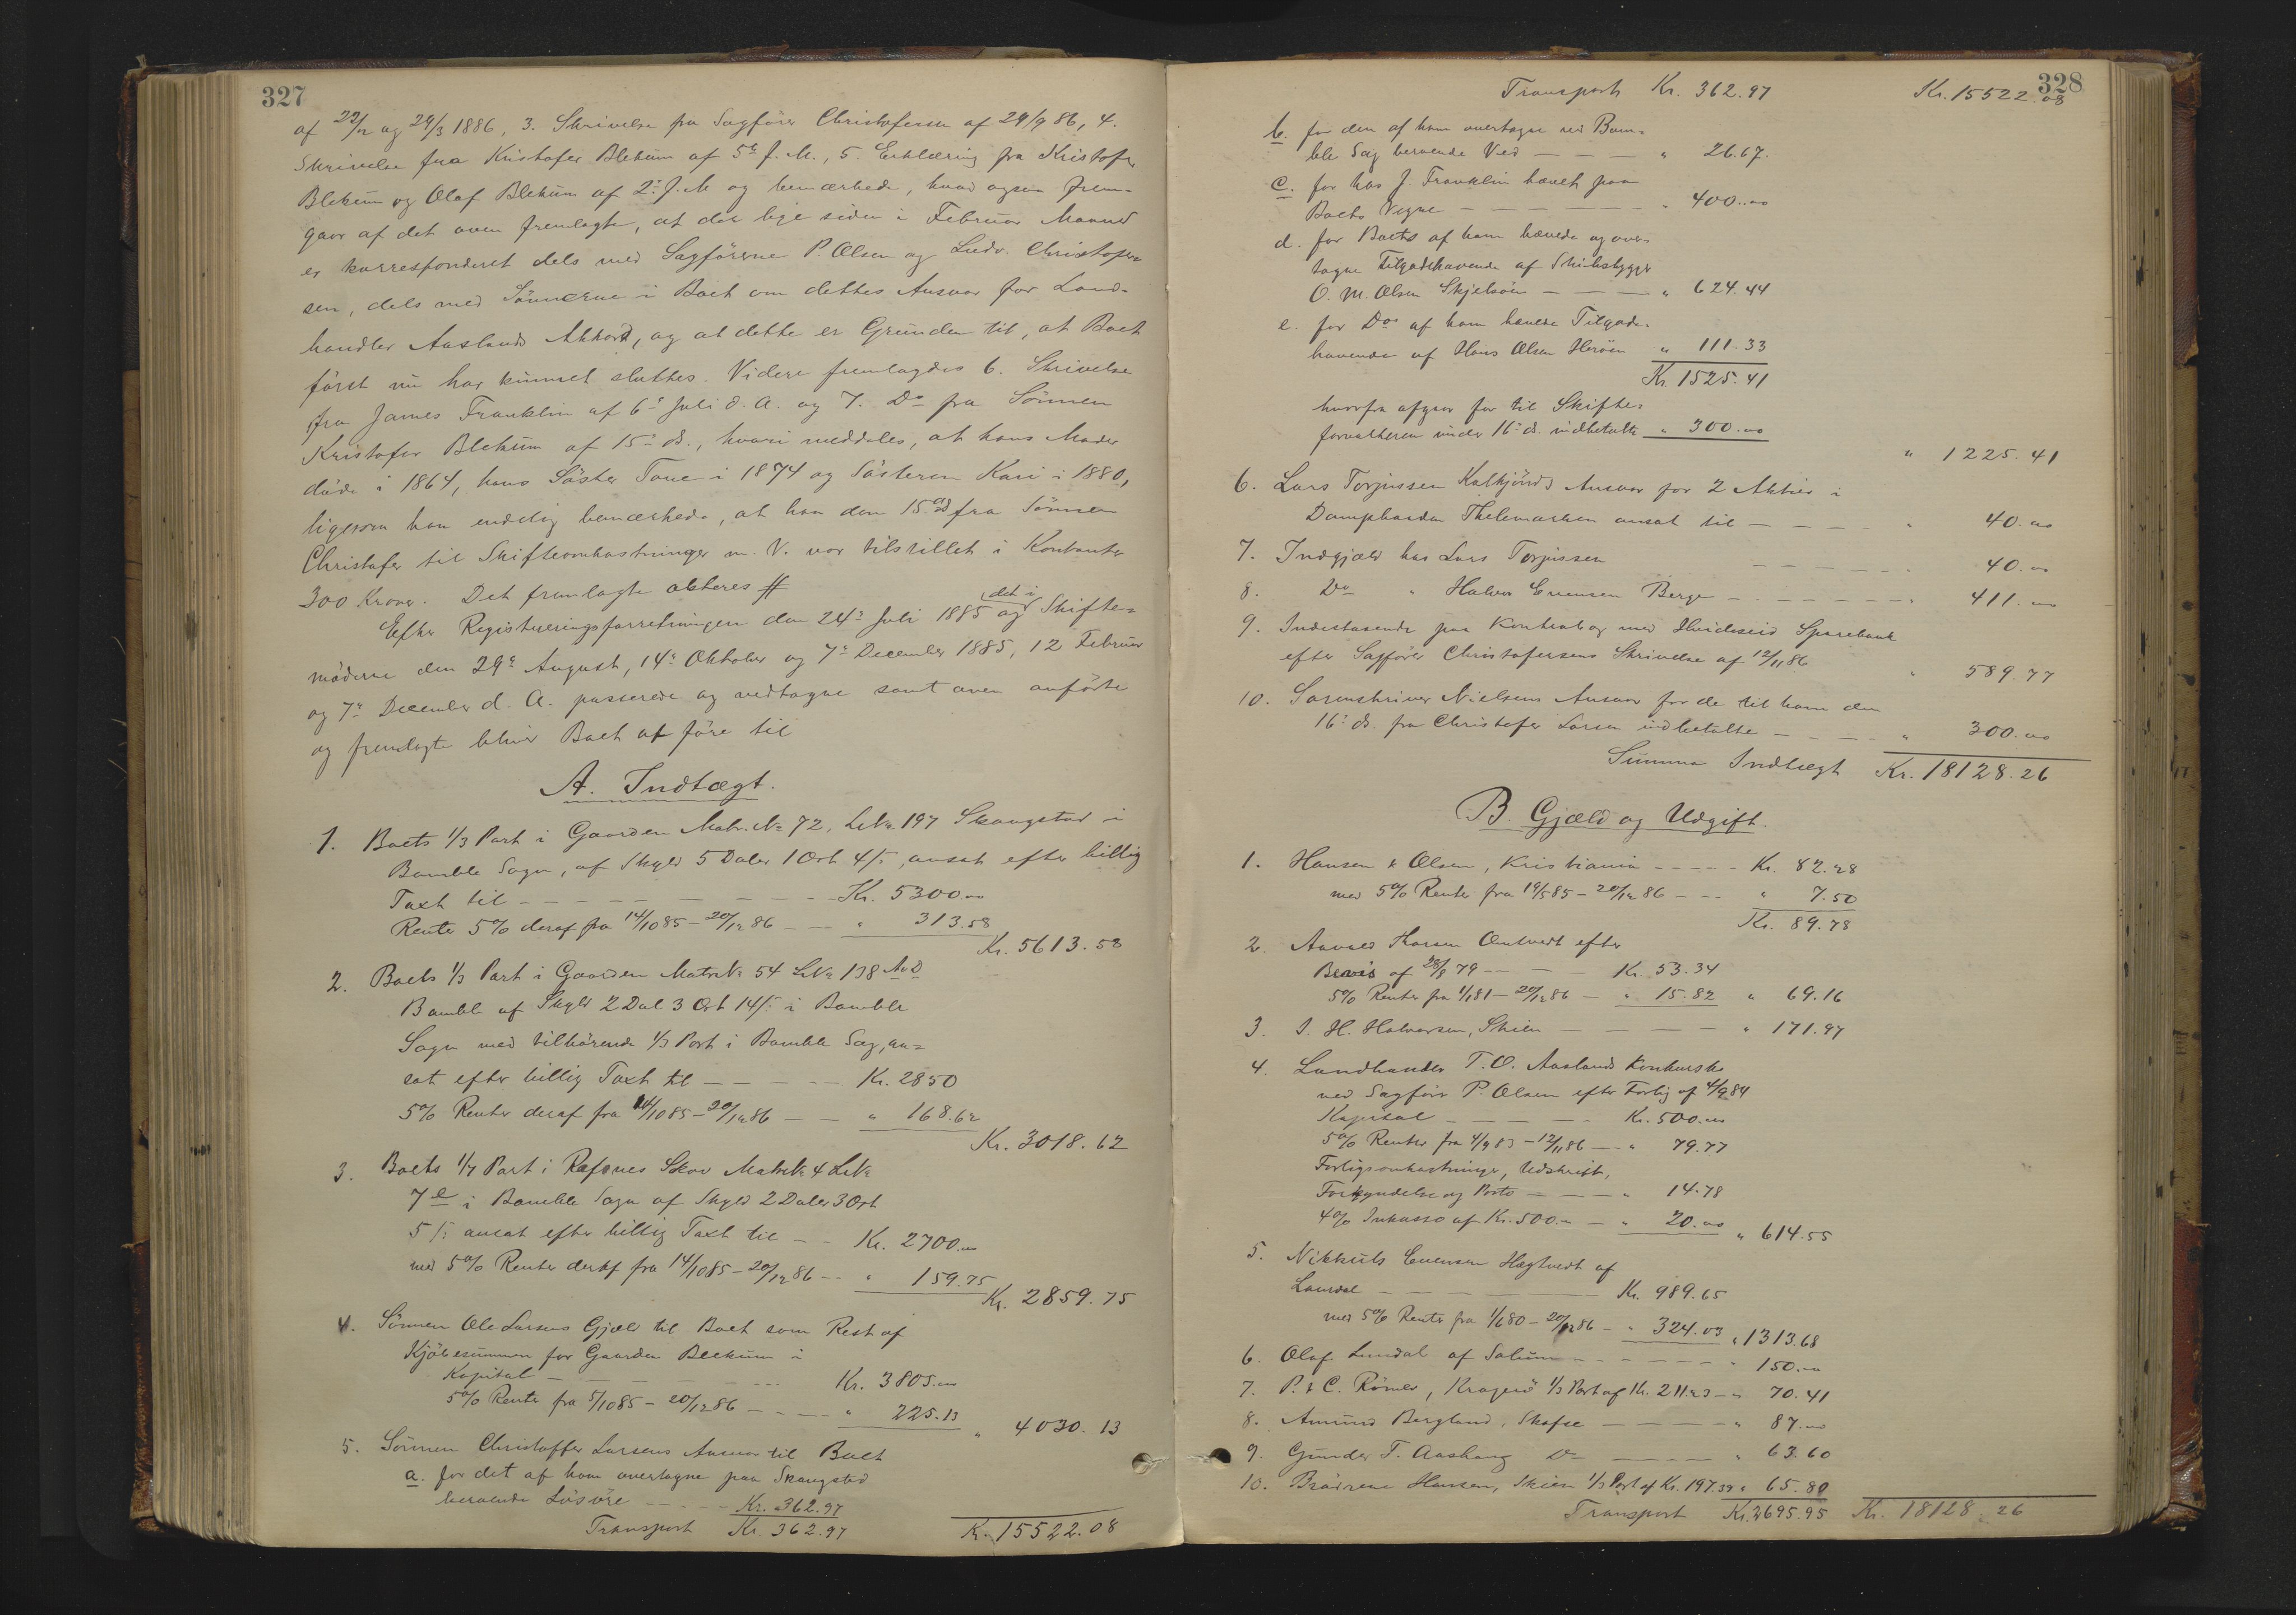 327
af 22/12 og 29/3 1886, 3. Skrivelse fra Sagfører Christofersen af 29/9 86, 4.
Skrivelse fra Kristofer Blekum af 5te f. M., 5. Erklæring fra Kristofer
Blekum og Olaf Blekum af 2. f. M og bemærkede, hvad ogsaa frem-
gaar af det oven fremlagte, at der lige siden i Februar Maaned
er korresponderet dels med Sagførerne P. Olsen og Ludv. Christofer-
sen, dels med Sønnerne i Boet om dettes Ansvar for Land-
handler Aaslands Akkord, og at dette er Grunden til, at Boet
først nu har kunnet sluttes. Videre fremlagdes 6. Skrivelse
fra James Franklin af 6te Juli d. A. og 7. Do fra Sønnen
Kristofer Blekum af 15. ds., hvori meddeles, at hans Moder
døde i 1864, hans Søster Tone i 1874 og Søsteren Kari i 1880,
ligesom han endelig bemærkede, at han den 15. ds fra Sønnen
Christofer til Skifteomkostninger m. V. var tilstillet i Kontanter
300 Kroner. Det fremlagte akteres #
Efter Registreringsforretningen den 24. Juli 1885 og det i Skifte-
møderne den 29. August, 14. Oktober og 7. December 1885, 12 Februar
og 7. December d. A. passerede og vedtagne samt oven anførte
og fremlagte bliver Boet at føre til
A. Indtægt.
1. Boets 1/3 Part i Gaarden Matr. No 72, LNo 197 Skaugstad i
Bamble Sogn, af Skyld 5 Daler 1 Ort 4 ß, ansat efter billig
Taxt til - - - - Kr. 5300.00
Renter 5% deraf fra 14/10 85 - 20/12 86 - - " 313.58
Kr. 5613.58
2. Boets 1/3 Part i Gaarden MatrNo 54 LNo 138
Bamble af Skyld 2 Dal 3 Ort 14 ß i Bamble
Sogn med tilhørende 1/3 Part i Bamble Sag, an-
sat efter billig Taxt til - - - Kr. 2850
5% Renter deraf fra 14/10 85 - 20/12 86 - - " 168.62
Kr. 3018.62
3. Boets 1/7 Part i Rafnes Skov MatrNo 4 LNo
7e i Bamble Sogn af Skyld 2 Daler 3 Ort
5 ß ansat efter billig Taxt til - - Kr. 2700.00
med 5% Renter deraf fra 14/10 85 - 20/12 86 - - " 159.75
Kr. 2859.75
4. Sønnen Ole Larsens Gjæld til Boet som Rest af
Kjøbesummen for Gaarden Bleekum i
Kapital - - - - Kr. 3805.00
5% Renter fra 5/10 85 - 20/12 86 - - - " 225.13
" 4030.13
5. Sønnen Christoffer Larsens Ansvar til Boet
a. for det af ham overtagne paa Skaugstad
beroende Løsøre - - - - Kr. 362.97
Transport Kr. 362.97 Kr. 15522.08
328
Transport Kr. 362.97 Kr. 15522.08
b. for den af ham overtagne ved Bam-
ble Sag beroende Ved - - - " 26.67.
c. for hos J. Franklin hævet paa
Boets Vegne - - - - - " 400.00
d. for Boets af ham hævede og over-
tagne Tilgodehavende af Skibsbygger
O. M. Olsen Skjelsøen - - - " 624.44
e. for Dos af ham hævede Tilgode-
havende af Hans Olsen Herøen " 111.33
Kr. 1525.41
hvorfra afgaar for til Skifte-
forvalteren under 16. ds. indbetalte " 300.00
" 1225.41
6. Lars Torjussen Kalkjønds Ansvar for 2 Aktier i
Dampbaaden Thelemarken ansat til - - - - " 40.00
7. Indgjæld hos Lars Torjussen - - - - - 40.00
8. Do " Halvor Evensen Berge - - - - - - " 411.00
9. Indestaaende paa Kontrabog med Hvideseid Sparebank
efter Sagfører Christofersens Skrivelse af 12/11 86 " 589.77
10. Sorenskriver Nielsens Ansvar for de til ham den
16. ds. fra Christofer Larsen indbetalte - - - - " 300.00
Summa Indtægt Kr. 18128.26
B. Gjæld og Udgift.
1. Hansen & Olsen, Kristiania - - - - - Kr. 82.28
med 5% Renter fra 19/5 85 - 20/12 86 - - - " 7.50
Kr. 89.78
2. Aanund Thorsen Omtvedt efter
Bevis af 28/8 79 - - - - Kr. 53.34
5% Renter fra 1/1 81 - 20/12 86 - " 15.82 " 69.16
3. I. H. Halvorsen, Skien - - - - - " 171.97
4. Landhandler T. O. Aaslands Konkursbo
ved Sagfører P. Olsen efter Forlig af 4/9 84
Kapital - - - - - Kr. 500.00
5% Renter fra 4/9 83 - 12/11 86 - - " 79.77
Forligsomkostninger, Udskrift,
Forkyndelse og Porto - - - - " 14.78
4% Inkasso af Kr. 500.- - " 20.00 " 614.55
5. Nikkuls Evensen Hægtvedt af
Laurdal - - - - - - Kr. 989.65
med 5% Renter fra 1/6 80 - 20/12 86 - " 324.03 " 1313.68
6. Olaf Lundal af Solum - - - - - - - " 150.00
7. P. & C. Rømer, Kragerø 1/3 Part af Kr. 211.23 - " 70.41
8. Amund Bergland, Skafse - - - - - " 87.00
9. Gunder T. Aashaug Do - - - - - " 63.60
10. Brødrene Hansen, Skien 1/3 Part af Kr. 197.39 " 65.80
Transport Kr. 2695.95 Kr. 18128.26